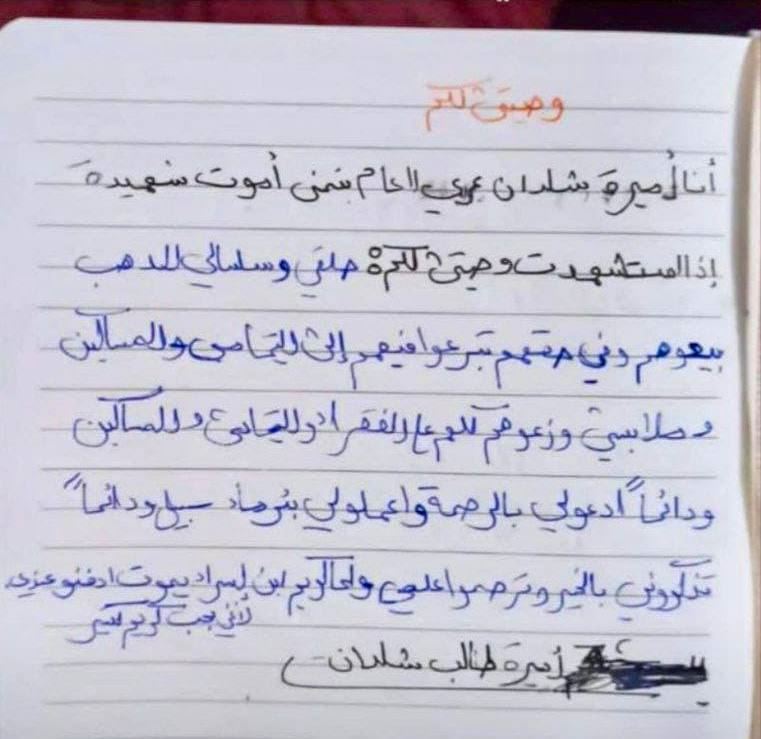 وصيتي لكم
أنا أميرة شلدان عمري 11 عام بتمنى أموت شهيدة
إذا استشهدت وصيتي لكم حلقي وسلسالي الدهب
بيعوهم وفي حقهم تبرعوا فيهم إلى اليتامى والمساكين
وملابسي وزعوهم كلهم على الفقراء واليتامى والمساكين
ودائماً ادعولي بالرحمة واعملولي بئر ماء سبيل ودائماً
تذكروني بالخير وترحموا علي ولما كريم ابن إسراء يموت ادفنو عندي
لأني بحب كريم كتير
أميرة طالب شلدان